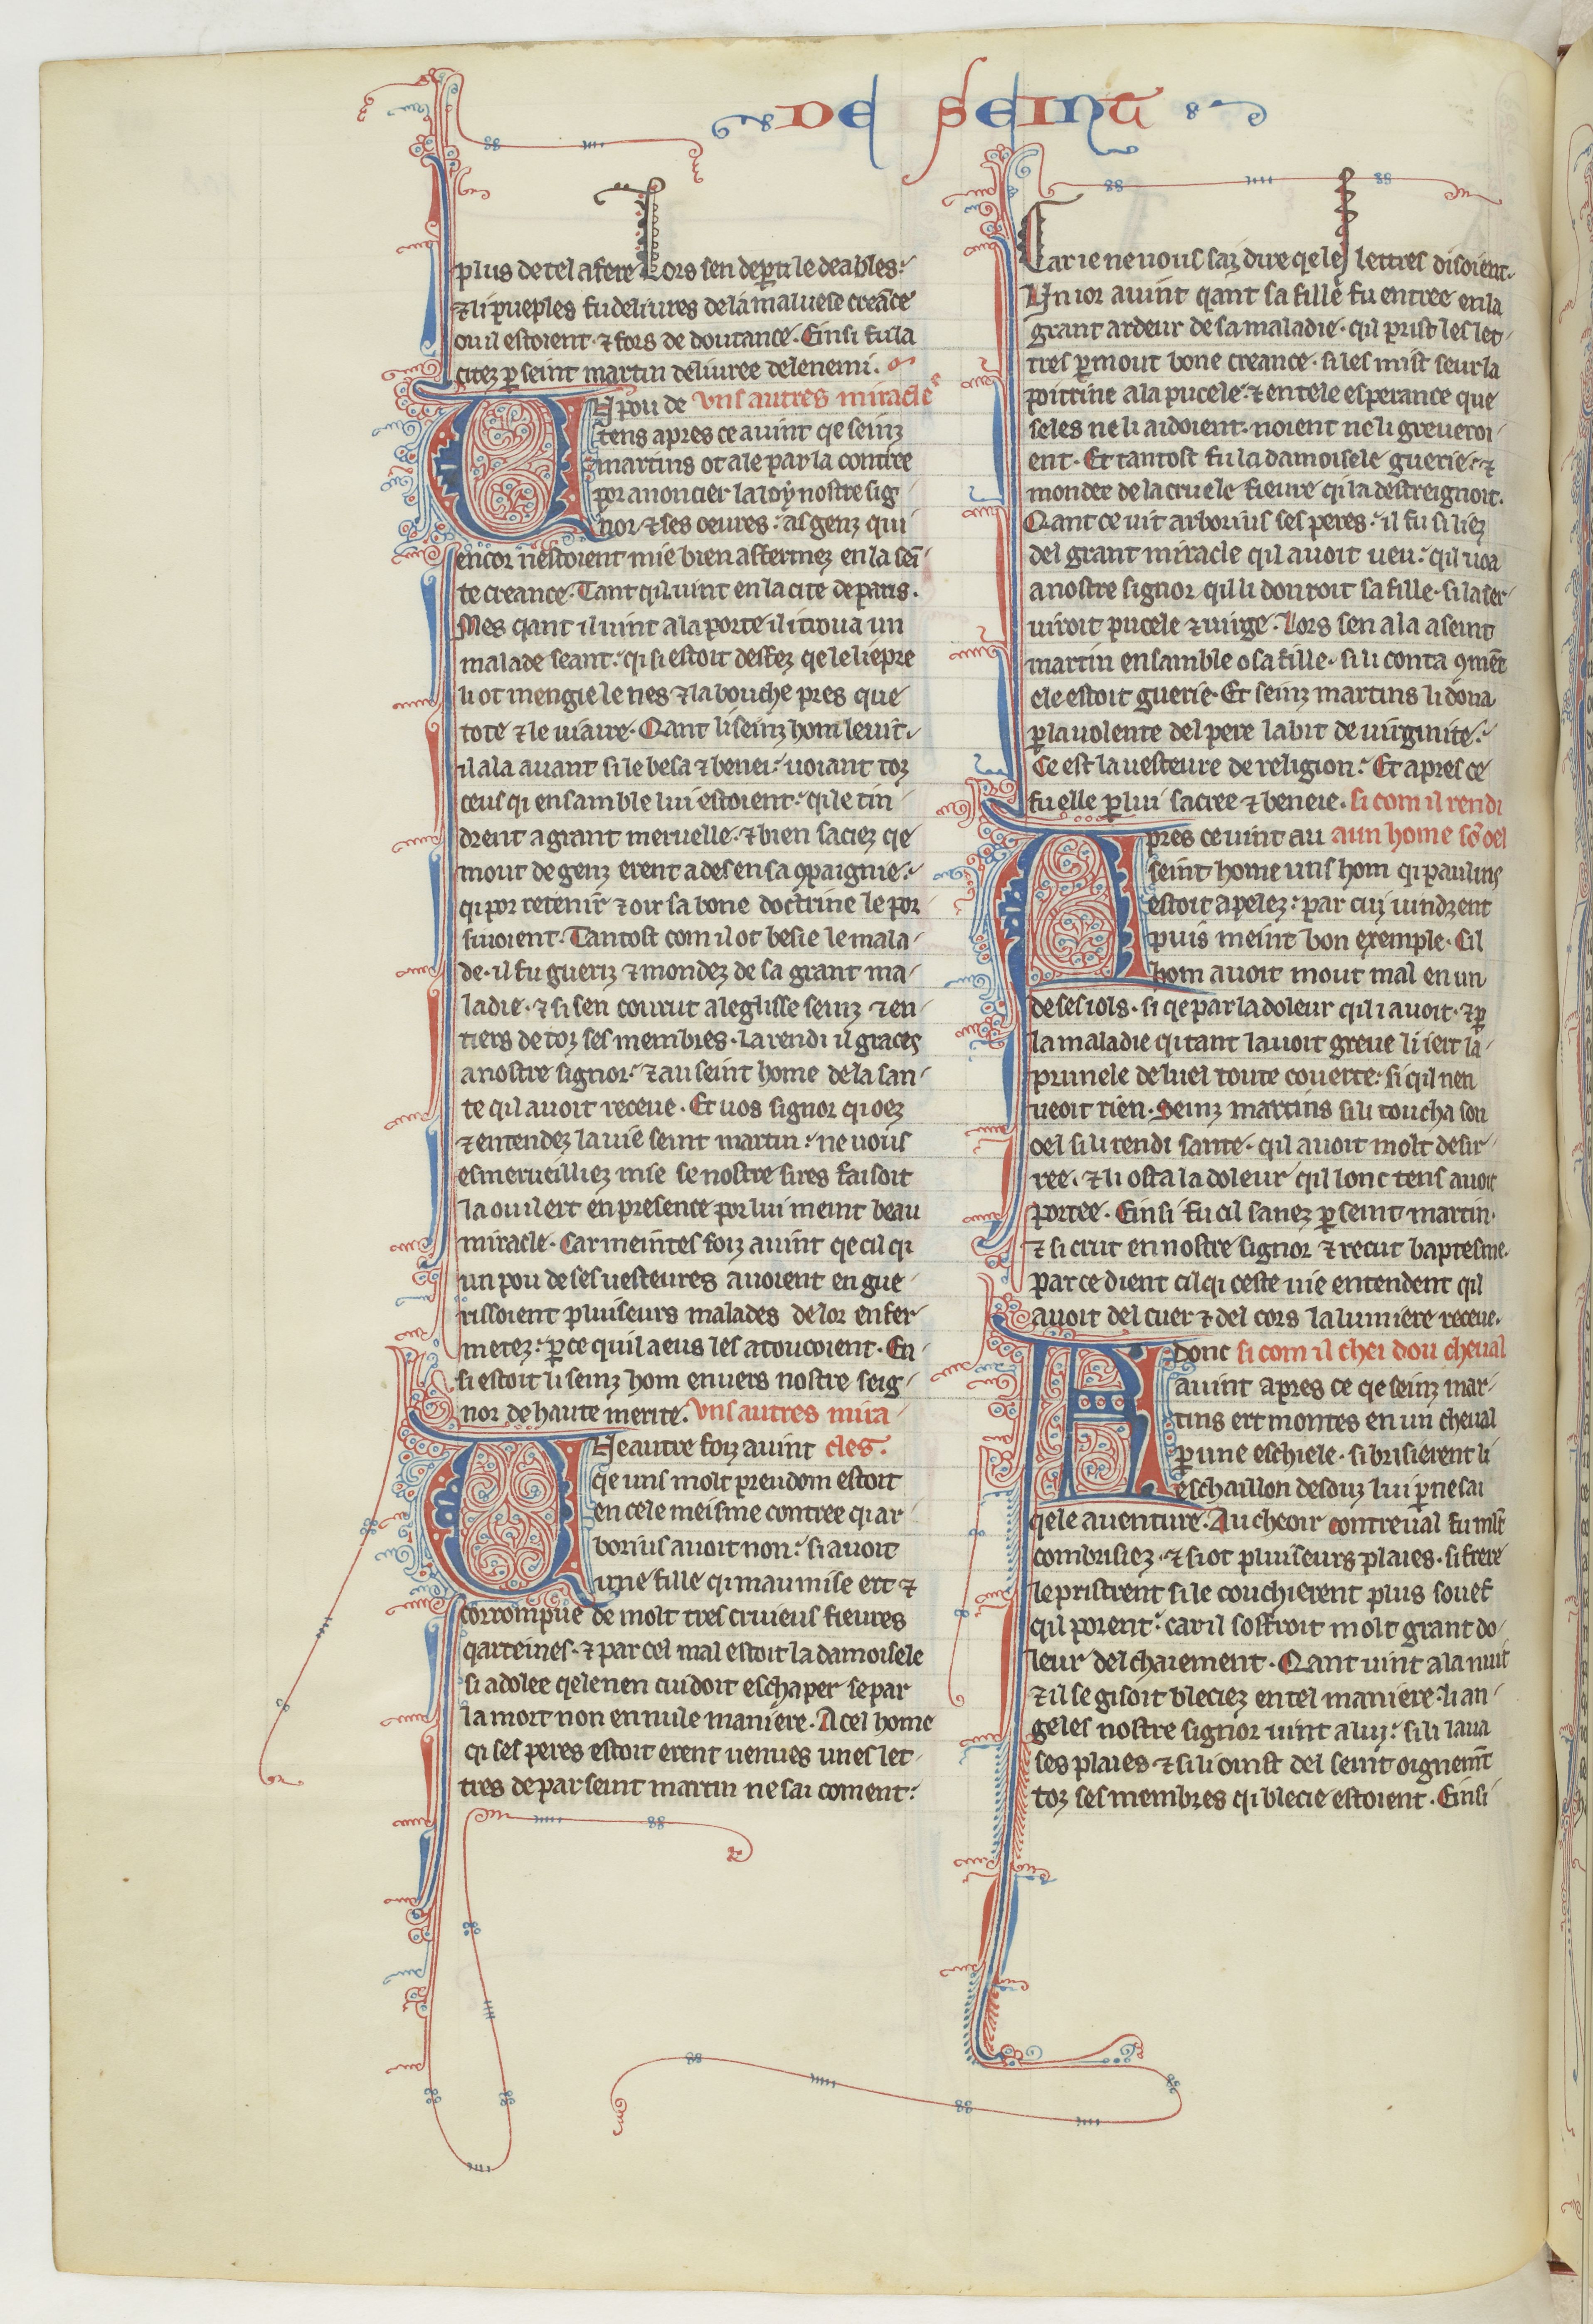 DE SEINT
plus de tel afere Lors sen depti le deables.
⁊ li pueples fu deliures de la maluese creāce
ou il estoient ⁊ fors de doutance. Einsi fu la
citez ꝑ seint martin deliuree de lenemi.
UN pou de vns autres miracles
tens apres ce auint qe seinz
martins ot ale par la contree
por anoncier la loy nostre sig
nor ⁊ ses oeures. as genz qui
encor nestoient mie bien affermez en la sei
te creance. Tant qil uint en la cite de paris.
Mes qant il uint a la porte il i troua un
malade seant. qi si estoit desfez qe le liepre
li ot mengie le nes ⁊ la bouche pres que
tote ⁊ le uiaire. Qant li seinz hom le uit.
il ala auant si le besa ⁊ benei. uoiant toz
ceus qi ensamble lui estoient. qi le tin
drent a grant meruelle. ⁊ bien saciez qe
mout de genz erent ades en sa ꝯpaignie.
qi por retenir ⁊ oir sa bone doctrine le por
siuoient. Tantost com il ot besie le mala
de. il fu gueriz ⁊ mondez de sa grant ma
ladie. ⁊ si sen courut a leglisse seinz ⁊ en
tiers de toz ses membres. La rendi il graces
a nostre signor. ⁊ au seint home de la san
te qil auoit receue. Et uos signor qi oez
⁊ entendez la uie seint martin. ne uous
esmerueilliez mie se nostre sires faisoit
la ou il ert en presence por lui meint beau
miracle. Car meintes foiz auint qe cil qi
un pou de ses uesteures auoient en gue
rissoient pluiseurs malades de lor enfer
metez. ꝑ ce quil a eus les atoucoient. En
si estoit li seinz hom enuers nostre seig
nor de haute merite. vns autres mira
UNe autre foiz auint cles.
qe uns molt preudom estoit
en cele meisme contree qi ar
borius auoit non. si auoit
une fille qi mau mise ert ⁊
corrompue de molt tres cruieus fieures
qarteines. ⁊ par cel mal estoit la damoisele
si adolee qele nen cuidoit eschaper se par
la mort non en nule maniere. A cel home
qi ses peres estoit erent uenues unes let
tres de par seint martin ne sai coment.
Car ie ne uous saz dire qe les lettres disoient.
Un ior auint qant sa fille fu entree en la
grant ardeur de sa maladie. qil prist les let
tres ꝑ mout bone creance. si les mist seur la
poitrine a la pucele. ⁊ en tele esperance que
seles ne li aidoient. noient ne li greueroi
ent. Et tantost fu la damoisele guerie. ⁊
mondee de la cruele fieure qi la destreignoit.
Qant ce uit arborius ses peres. il fu si liez
del grant miracle qil auoit ueu. qil uoa
a nostre signor qil li donroit sa fille. si la ser
uiroit pucele ⁊ uirge. Lors sen ala a seint
martin ensamble o sa fille. si li conta ꝯmēt
ele estoit guerie. Et seinz martins li dona
ꝑ la uolente del pere labit de uirginite.
Ce est la uesteure de religion. Et apres ce
fu elle ꝑ lui sacree ⁊ beneie. si com il rendi
Apres ce uint au a un home sō oel
seint home uns hom qi paulins
estoit apelez. par cuj uindrent
puis meint bon exemple. Cil
hom auoit mout mal en un
de ses iols. si qe par la doleur qil i auoit. ⁊ ꝑ
la maladie qi tant lauoit greue li iert la
prunele de luel toute couerte. si qil nen
ueoit rien. Seinz martins si li toucha son
oel si li rendi sante. qil auoit molt desir
ree. ⁊ li osta la doleur qil lonc tens auoit
portee. Einsi fu cil sanez ꝑ seint martin.
⁊ si crut en nostre signor ⁊ recut baptesme.
par ce dient cil qi ceste uie entendent qil
auoit del cuer ⁊ del cors la lumiere receue.
Adonc si com il chei dou cheual
auint apres ce qe seinz mar
tins ert montes en un cheual
ꝑ une eschiele. si brisierent li
eschaillon desouz lui ꝑ ne sai
qele auenture. Au cheoir contreual fu mlt
combrisiez. ⁊ si ot pluiseurs plaies. si frere
le pristrent si le couchierent plus souef
qil porent. car il soffroit molt grant do
leur del chaiement. Qant uint a la nuit
⁊ il se gisoit bleciez en tel maniere. li an
geles nostre signor uint a luj. si li laua
ses plaies ⁊ si li oinst del seint oignemt
toz ses membres qi blecie estoient. Einsi